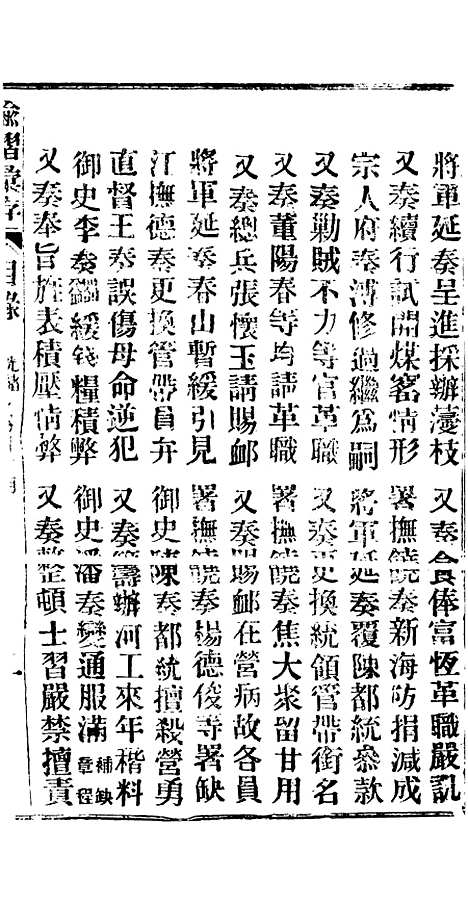 將軍延奏呈進採辦蓡枝
又奏食俸富恆革職嚴訊
又奏續行試開煤窰情形
署撫饒奏新海防捐減成
宗人府奏溥修過繼爲嗣
將軍延奏覆陳都統叅款
又奏勦賊不力等官革職
又奏更換統領管帶銜名
又奏董陽春等均請革職
署撫饒奏焦大衆留甘用
又奏總兵張懷玉請賜卹
又奏賜卹在營病故各員
將軍延奏春山暫緩引見
署撫饒奏楊德俊等署缺
江撫德奏更換管帶員弁
御史陳奏都統擅殺營勇
直督王奏誤傷母命逆犯
又奏籌辦河工來年稭料
御史李奏蠲緩錢糧積弊
御史潘奏變通服滿補缺章程
又奏奉旨旌表積壓情弊
又奏整頓士習嚴禁擅責
諭摺彙存 目錄